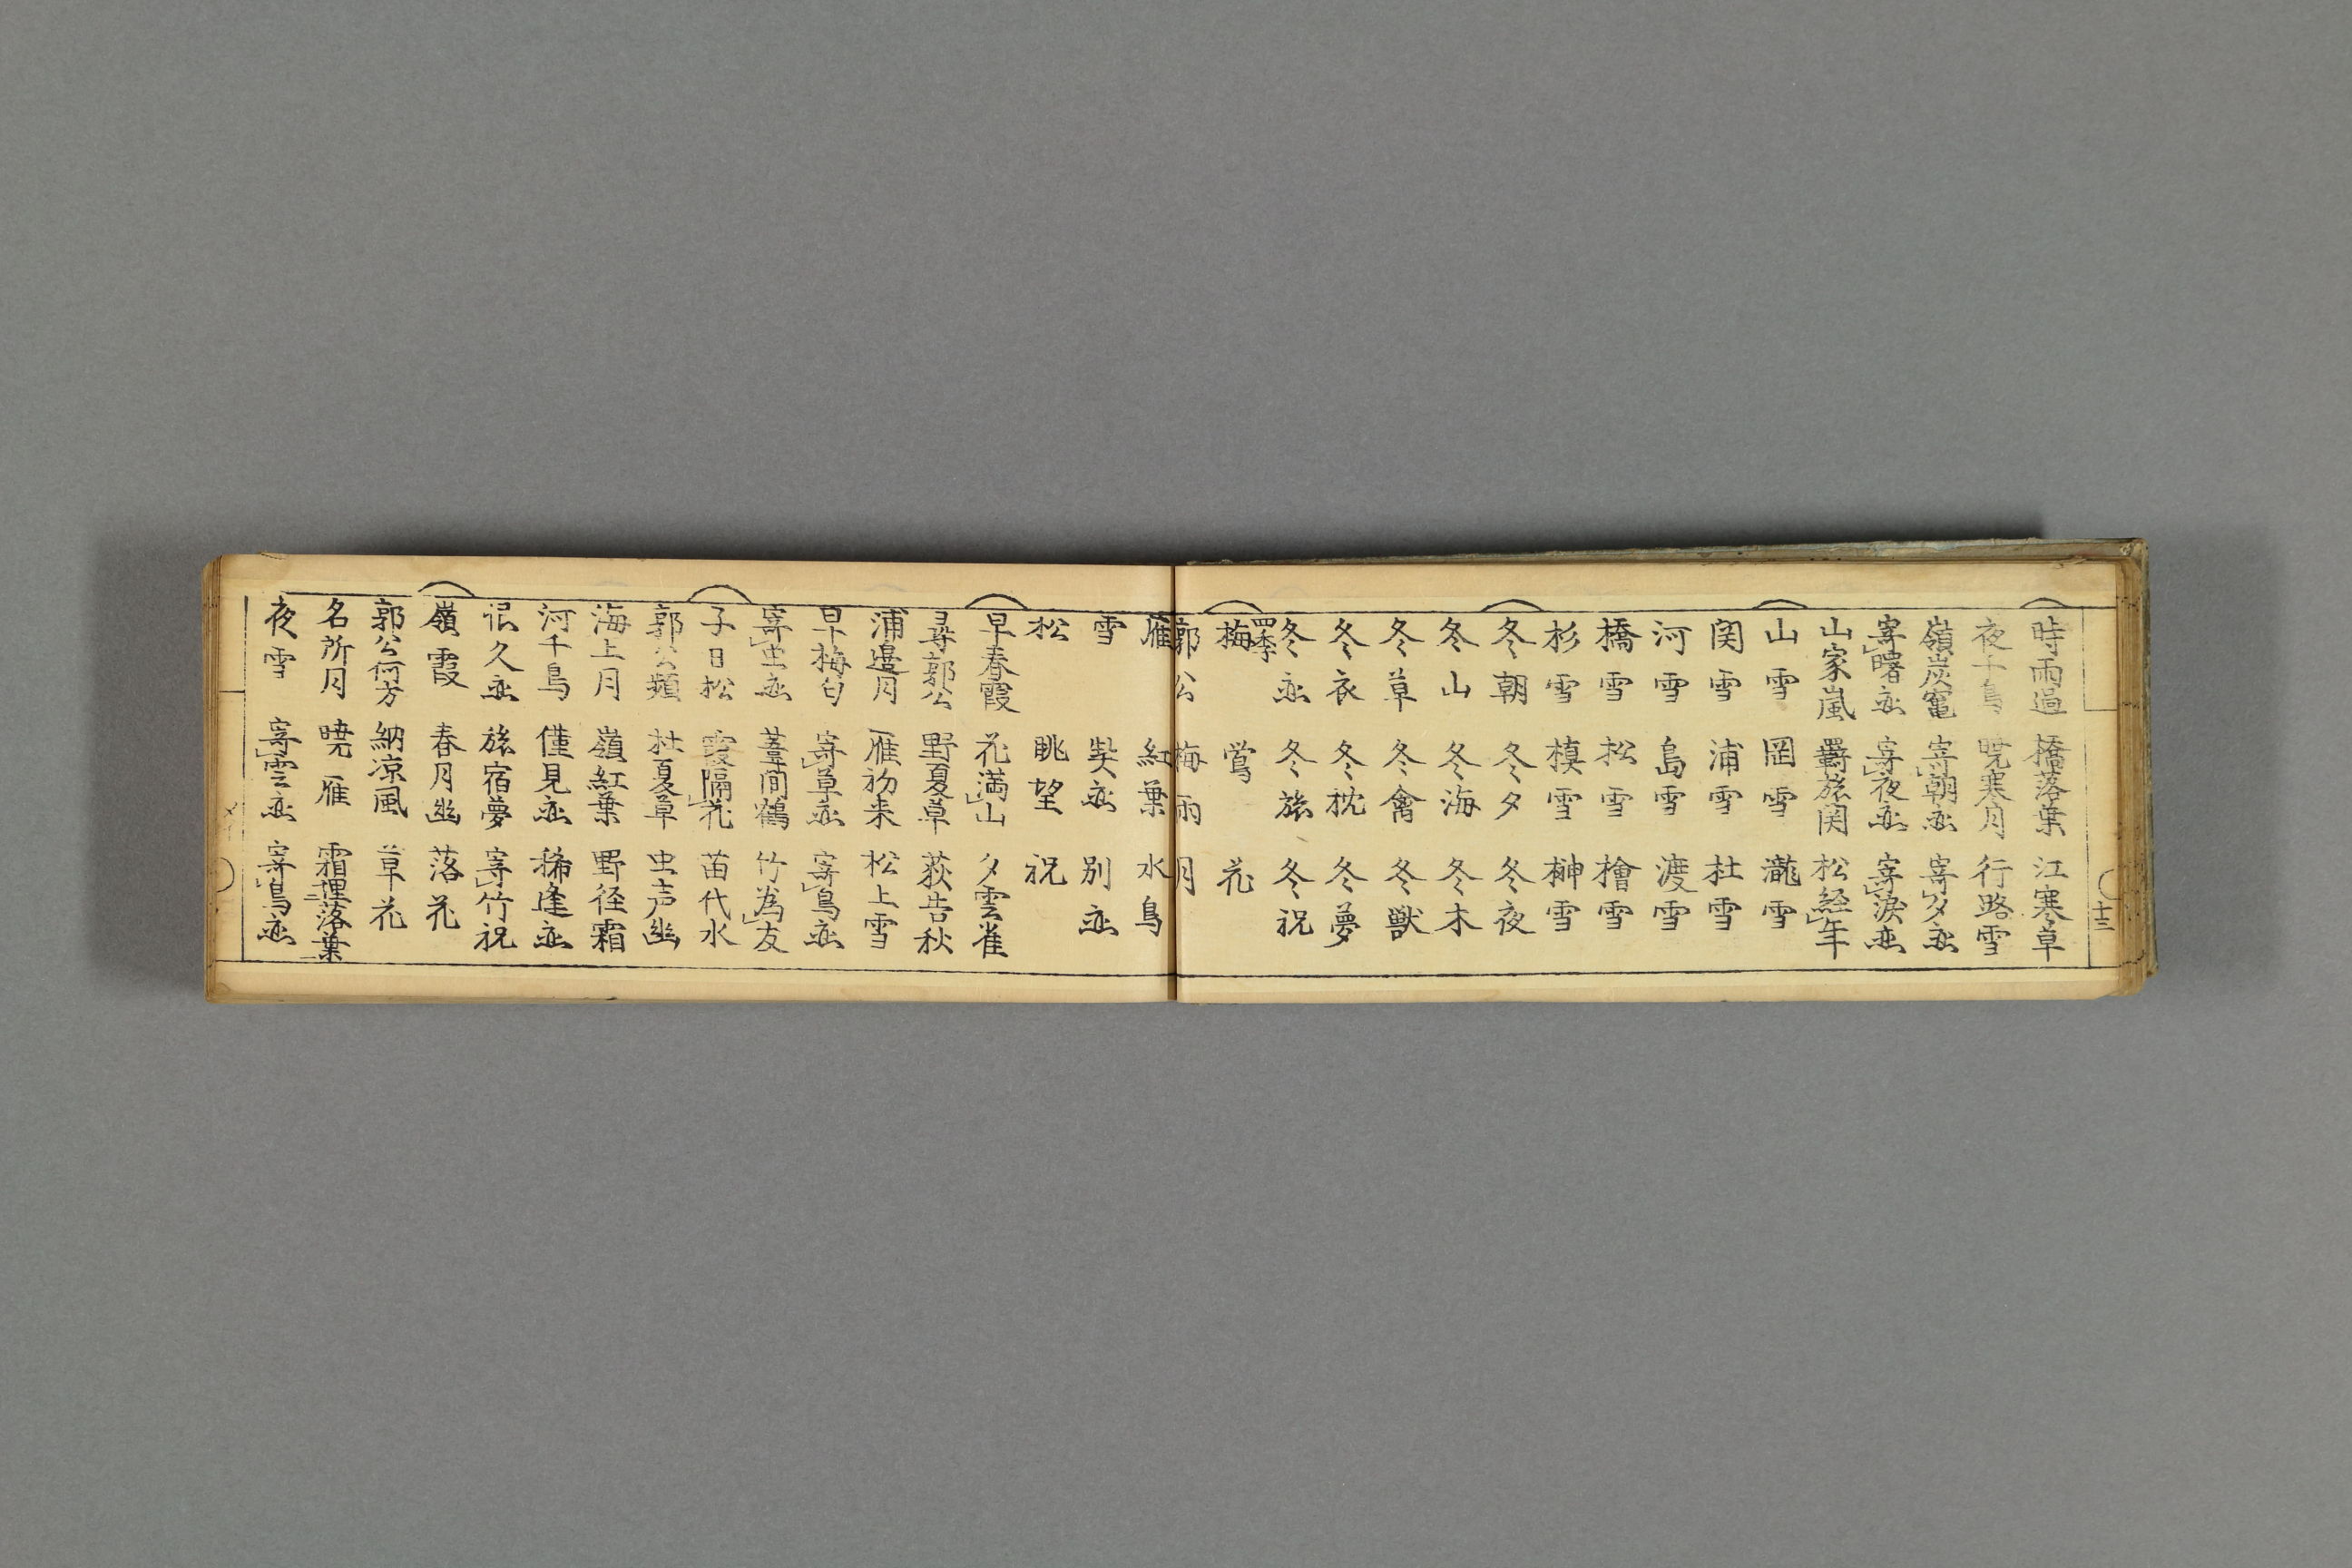 時雨過 橋落葉 江寒草
夜千鳥 暁寒月 行路雪
嶺炭竃 寄朝恋 寄夕恋
寄曙恋 寄夜恋 寄涙恋
山家嵐 羇旅関 松経年
山雪 岡雪 瀧雪
関雪 浦雪 杜雪
河雪 島雪 渡雪
橋雪 松雪 檜雪
杉雪 槙雪 榊雪
冬朝 冬夕 冬夜
冬山 冬海 冬木
冬草 冬禽 冬獣
冬衣 冬枕 冬夢
冬恋 冬旅 冬祝
四季
梅 鶯 花
郭公 梅雨 月
雁 紅葉 水鳥
雪 契恋 別恋
松 眺望 祝
早春霞 花満山 夕雲雀
尋郭公 野夏草 荻告秋
浦邊月 雁初来 松上雪
早梅匂 寄草恋 寄鳥恋
寄虫恋 葦間鶴 竹為友
子日松 霞隔花 苗代水
郭公頻 杜夏草 虫声幽
海上月 嶺紅葉 野径霜
河千鳥 僅見恋 稀逢恋
忍久恋 旅宿夢 寄竹祝
嶺霞 春月幽 落花
郭公何方 納凉風 草花
名所月 暁雁 霜埋落葉
夜雪 寄雲恋 寄鳥恋
十三